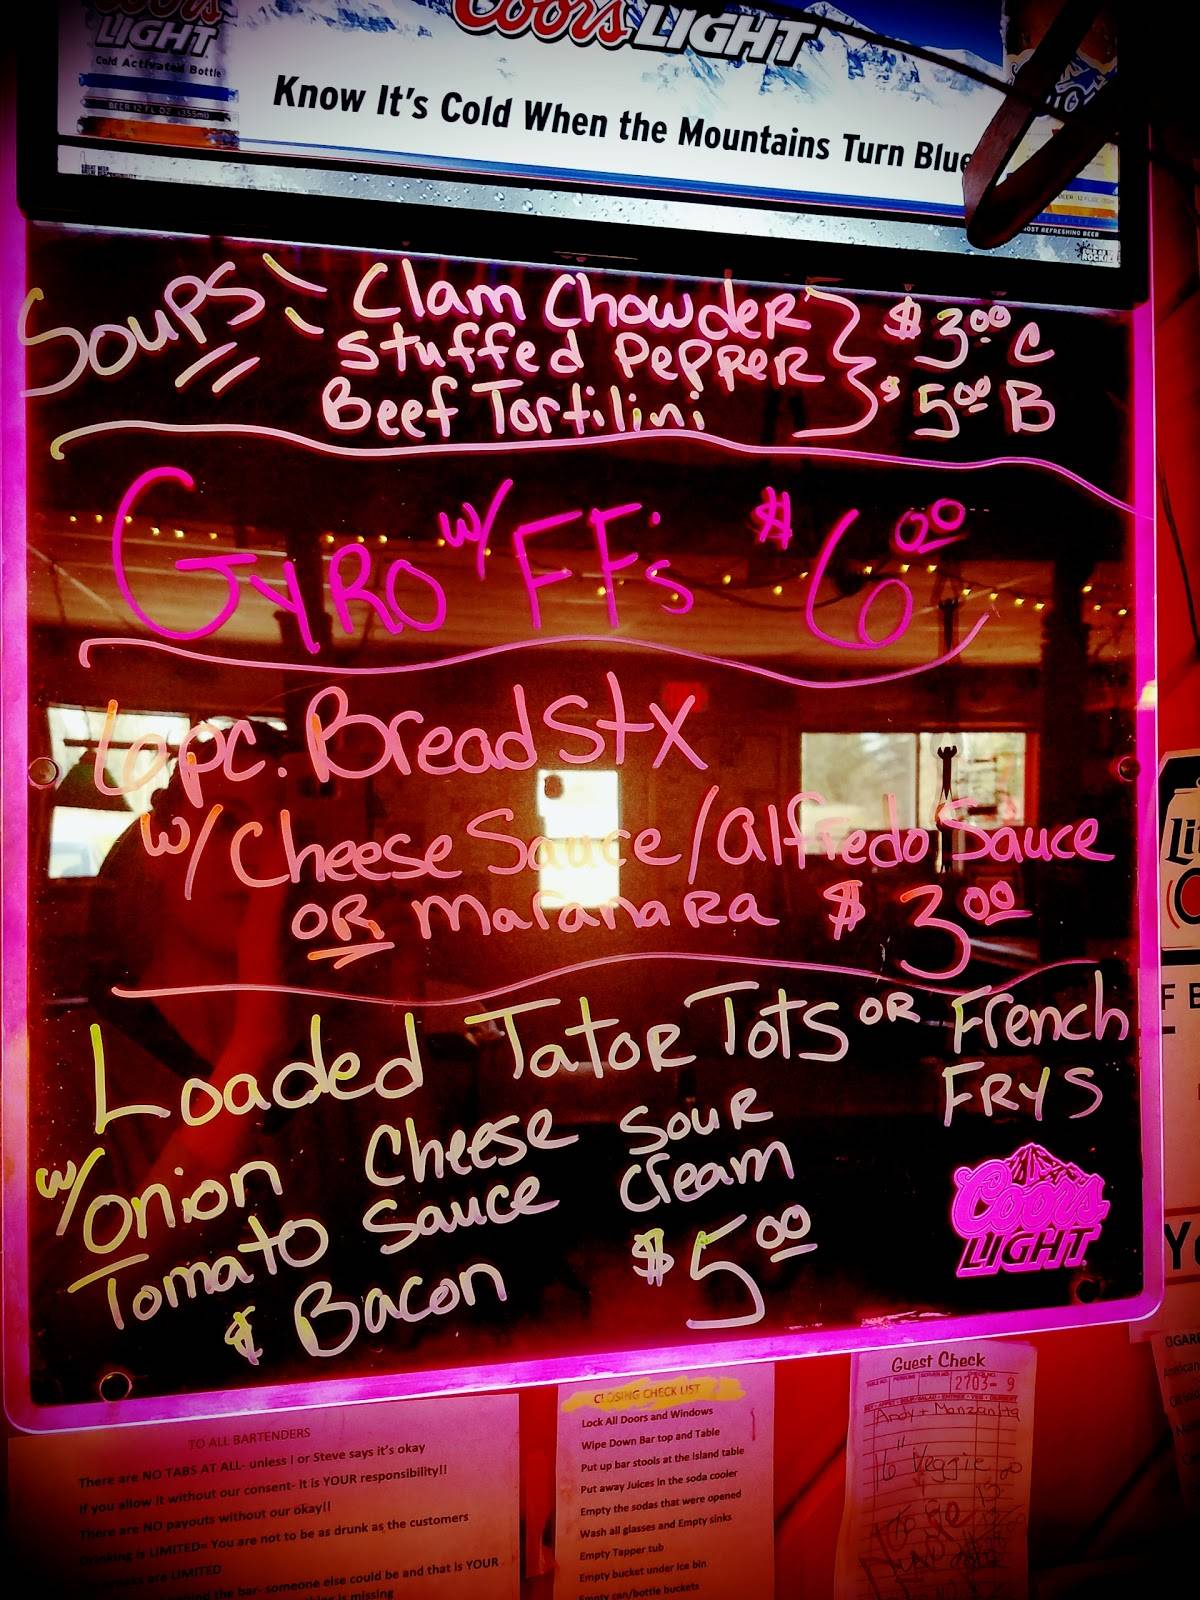 Coors LIGHT
Coors
LIGHT
Cold Activated Bottle
BEER 12 FL OZ (355ml)
Know It's Cold When the Mountains Turn Blue
MOST REFRESHING BEER
Soups: Clam Chowder $3.00 C
Stuffed Pepper
Beef Tortilini $5.00 B
Gyro w/ FF's $6.00
6pc. Bread Stx
w/ Cheese Sauce/Alfredo Sauce
OR Maranara $3.00
Loaded Tator Tots OR French
Frys
w/ Onion Cheese Sour
Tomato Sauce Cream
& Bacon $5.00
Coors
LIGHT
TO ALL BARTENDERS
There are NO TABS AT ALL- unless I or Steve says it's okay
If you allow it without our consent- It is YOUR responsibility!!
There are NO payouts without our okay!!
Drinking is LIMITED= You are not to be as drunk as the customers
are LIMITED
the bar- someone else could be and that is YOUR
is missing
CLOSING CHECK LIST
Lock All Doors and Windows
Wipe Down Bar top and Table
Put up bar stools at the Island table
Put away Juices in the soda cooler
Empty the sodas that were opened
Wash all glasses and Empty sinks
Empty Tapper tub
Empty bucket under Ice bin
Empty can/bottle buckets
Guest Check
2703-9
Andy + Manzanita
16" Veggie